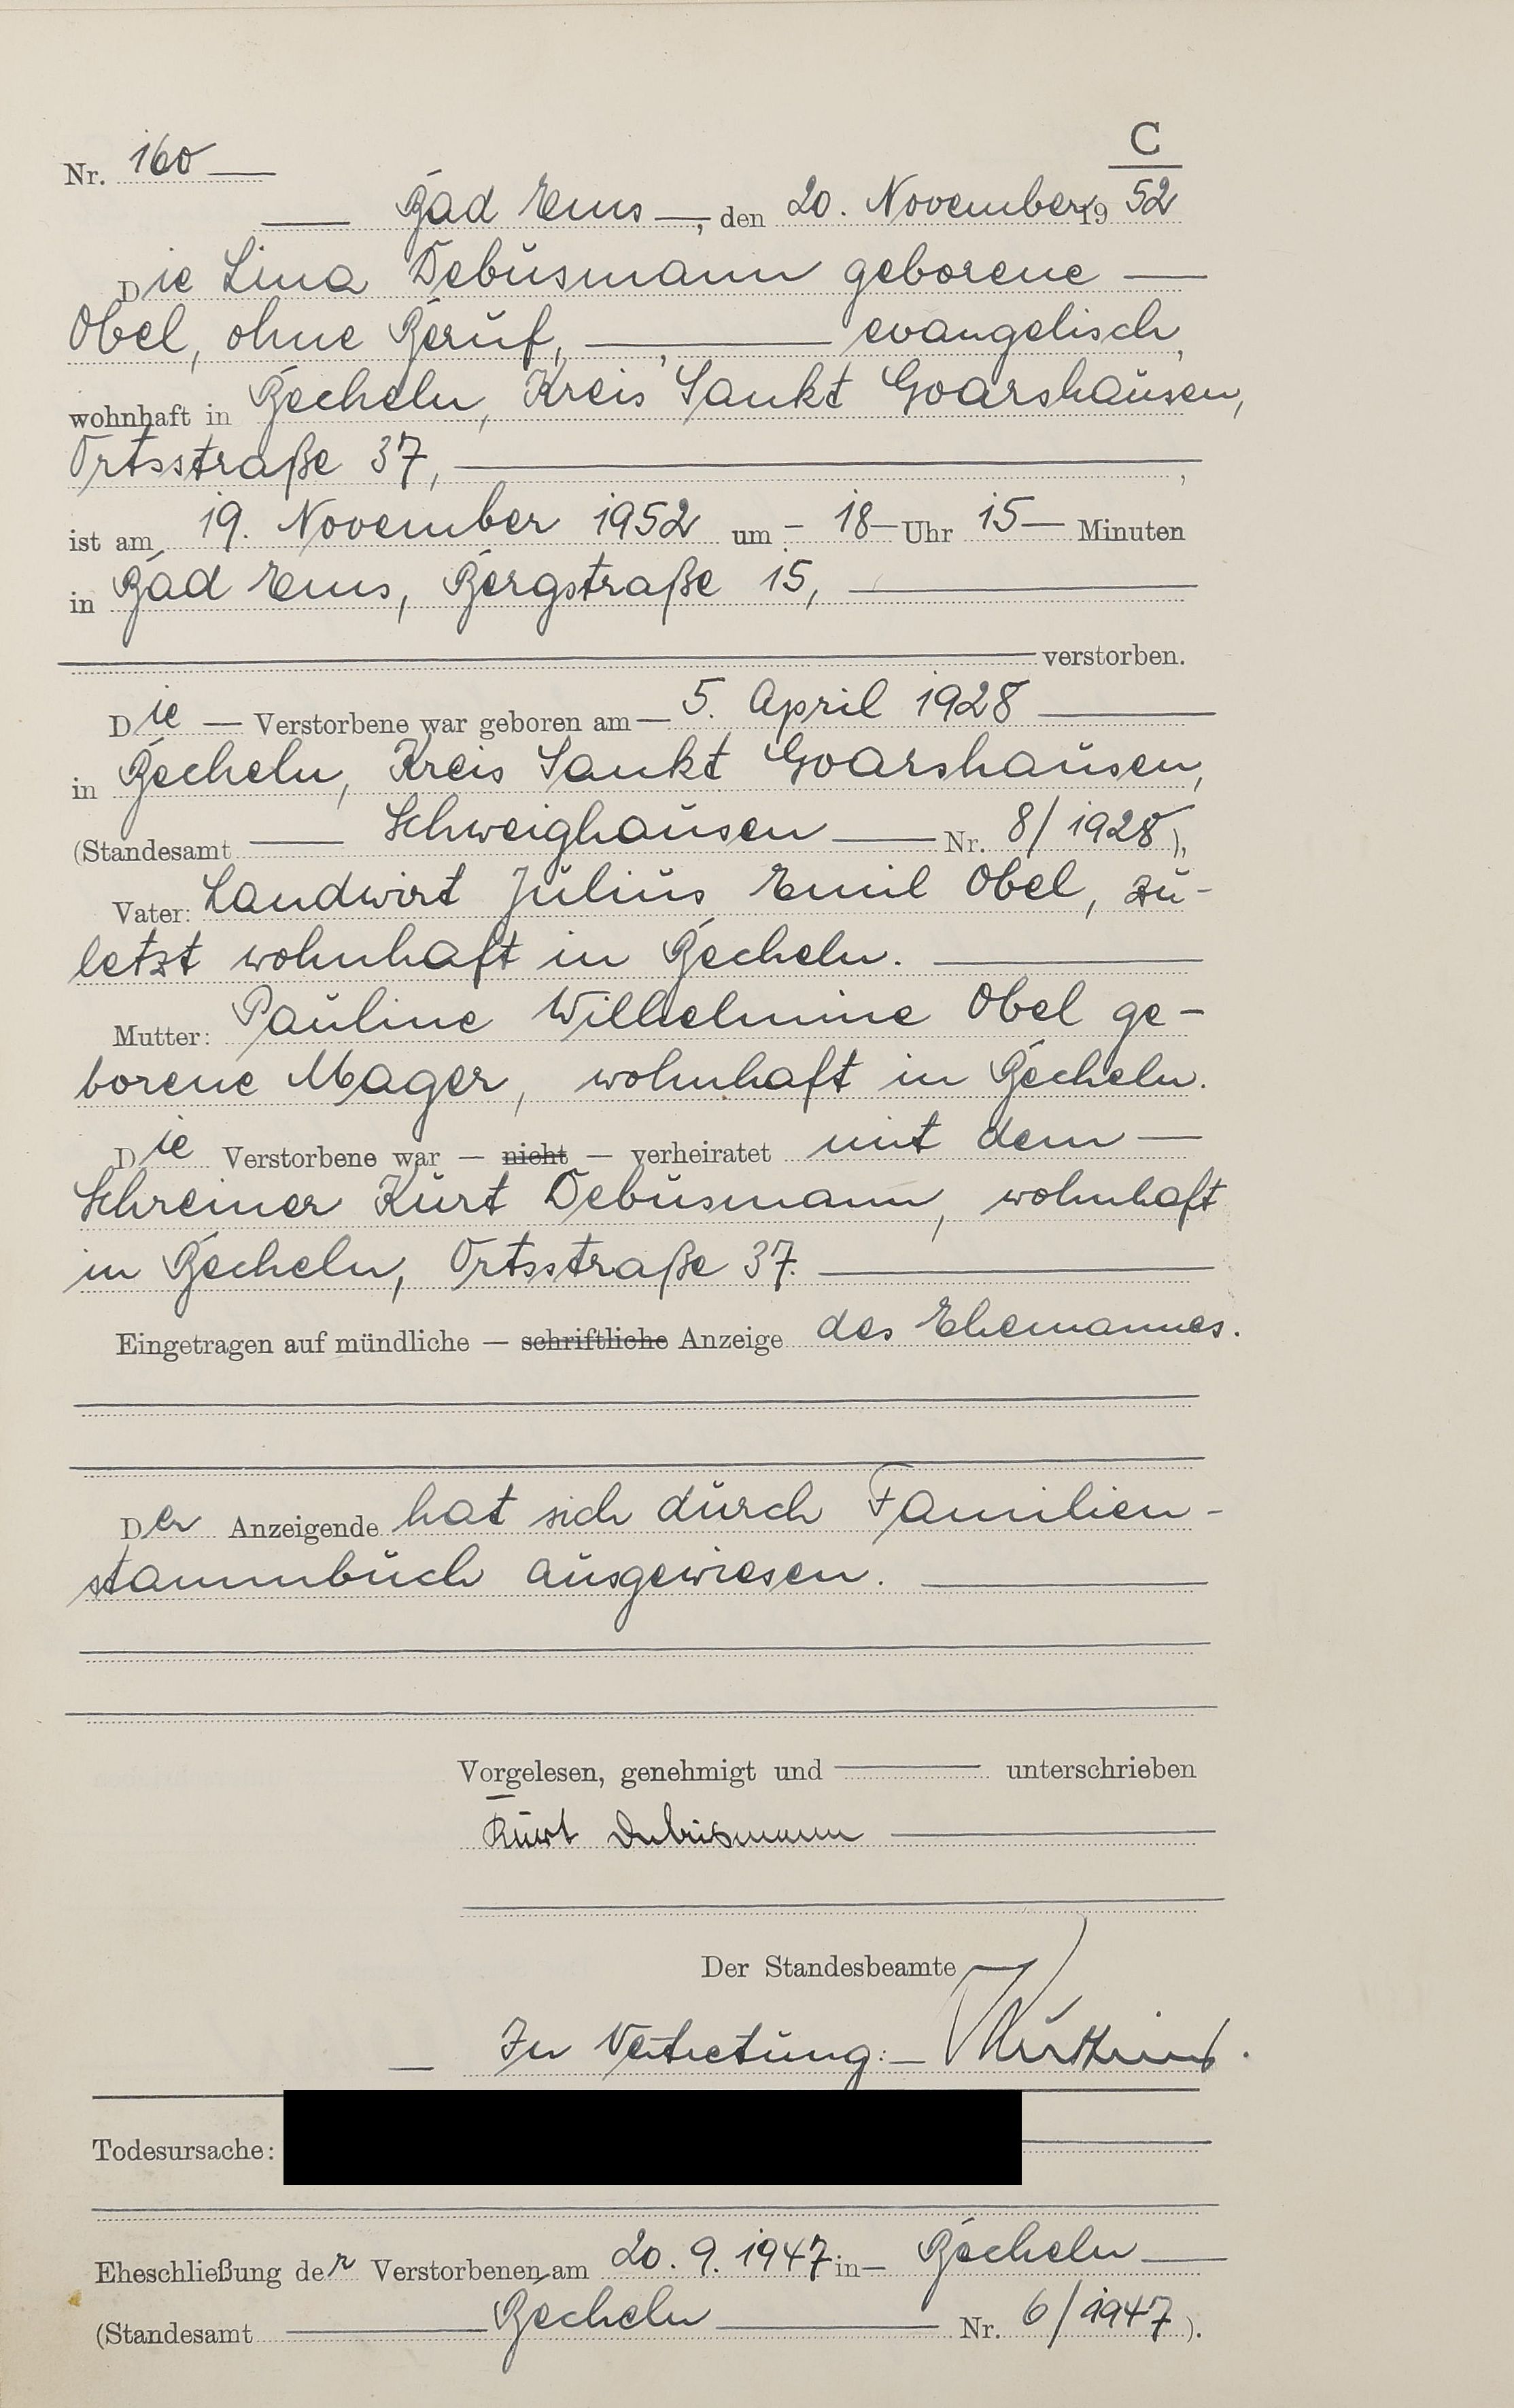 C
Nr. 160
Bad Ems, den 20. November 19 52
Die Lina Debusmann geborene
Obel, ohne Beruf, evangelisch,
wohnhaft in Becheln, Kreis Sankt Goarshausen,
Ortsstraße 37,
ist am 19. November 1952 um 18 Uhr 15 Minuten
in Bad Ems, Bergstraße 15,
verstorben.
Die Verstorbene war geboren am 5. April 1928
in Becheln, Kreis Sankt Goarshausen,
(Standesamt Schweighausen Nr. 8/1928),
Vater: Landwirt Julius Emil Obel, zu-
letzt wohnhaft in Becheln.
Mutter: Pauline Wilhelmine Obel ge-
borene Mager, wohnhaft in Becheln.
Die Verstorbene war — nicht — verheiratet mit dem
Schreiner Kurt Debusmann, wohnhaft
in Becheln, Ortsstraße 37.
Eingetragen auf mündliche — schriftliche Anzeige des Ehemannes.
Der Anzeigende hat sich durch Familien-
stammbuch ausgewiesen.
Vorgelesen, genehmigt und unterschrieben
Kurt Debusmann
Der Standesbeamte
In Vertretung:
Todesursache:
Eheschließung der Verstorbenen am 20.9.1947 in Becheln
(Standesamt Becheln Nr. 6/1947).